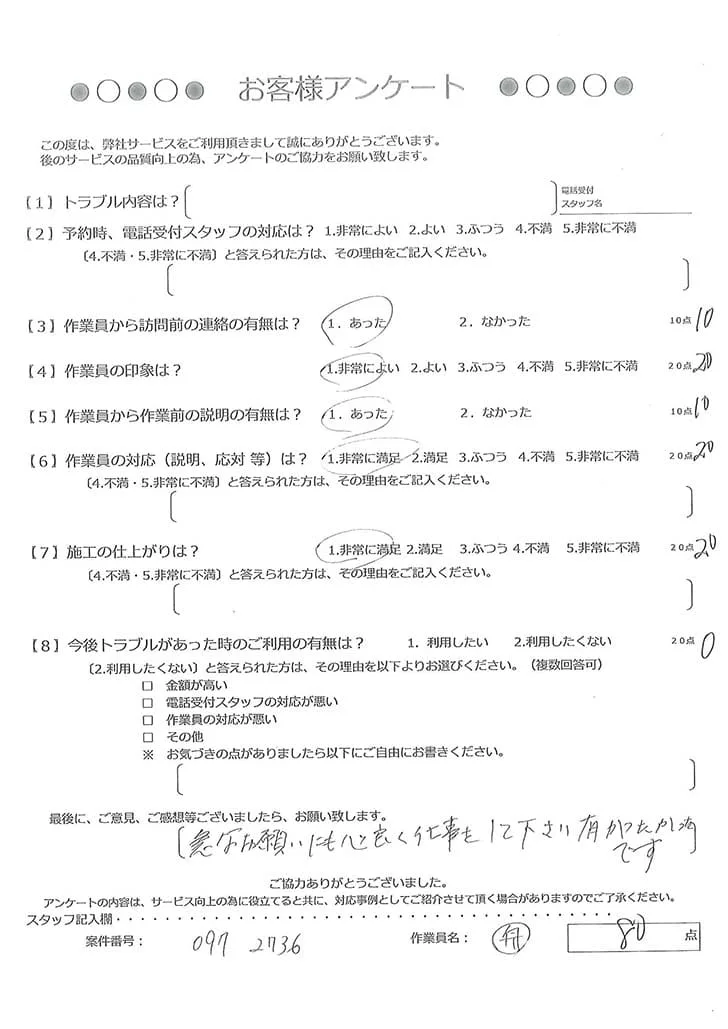 お客様アンケート
この度は、弊社サービスをご利用頂きまして誠にありがとうございます。
後のサービスの品質向上の為、アンケートのご協力をお願い致します。
【1】トラブル内容は？
電話受付
スタッフ名
【2】予約時、電話受付スタッフの対応は？ 1.非常によい 2.よい 3.ふつう 4.不満 5.非常に不満
〔4.不満・5.非常に不満〕と答えられた方は、その理由をご記入ください。
【3】作業員から訪問前の連絡の有無は？ 1．あった 2．なかった 10点 10
【4】作業員の印象は？ 1.非常によい 2.よい 3.ふつう 4.不満 5.非常に不満 20点 20
【5】作業員から作業前の説明の有無は？ 1．あった 2．なかった 10点 10
【6】作業員の対応（説明、応対 等）は？ 1.非常に満足 2.満足 3.ふつう 4.不満 5.非常に不満 20点 20
〔4.不満・5.非常に不満〕と答えられた方は、その理由をご記入ください。
【7】施工の仕上がりは？ 1.非常に満足 2.満足 3.ふつう 4.不満 5.非常に不満 20点 20
〔4.不満・5.非常に不満〕と答えられた方は、その理由をご記入ください。
【8】今後トラブルがあった時のご利用の有無は？ 1．利用したい 2.利用したくない 20点 0
〔2.利用したくない〕と答えられた方は、その理由を以下よりお選びください。（複数回答可）
□ 金額が高い
□ 電話受付スタッフの対応が悪い
□ 作業員の対応が悪い
□ その他
※ お気づきの点がありましたら以下にご自由にお書きください。
最後に、ご意見、ご感想等ございましたら、お願い致します。
急なお願いにも心良く仕事をして下さい有がつたか
です
ご協力ありがとうございました。
アンケートの内容は、サービス向上の為に役立てると共に、対応事例としてご紹介させて頂く場合がありますのでご了承ください。
スタッフ記入欄・・・・・・・・・・・・・・・・・・・・・・・・・・・・・・・・・・・・・・・・・・・・
案件番号： 097 2736 作業員名： 80 点